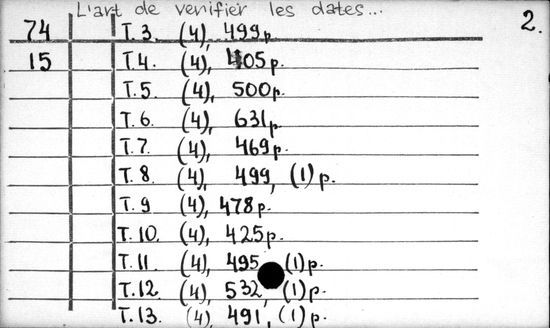 L'art de verifier les dates... 2.
74 T. 3. (4), 499 p.
15 T.4. (4), 405 p.
T.5. (4), 500 p.
T.6. (4), 631 p.
T.7. (4), 469 p.
T. 8 (4), 499, (1) p.
T. 9 (4), 478 p.
T. 10. (4), 425 p.
T. 11. (4), 495 (1) p.
T.12. (4), 532, (1) p.
T.13. (4), 491, (1) p.